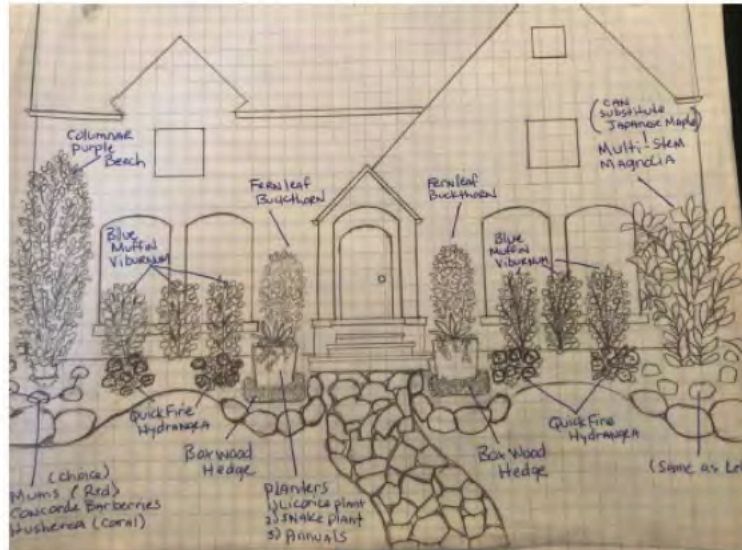 Columnar
Purple
Beech
Fernleaf
Buckthorn
Blue
Muffin
Viburnum
Fernleaf
Buckthorn
Blue
Muffin
Viburnum
(CAN
Substitute
Japanese Maple)
Multi-Stem
Magnolia
QuickFire
Hydrangea
Boxwood
Hedge
Planters
1) Licorice plant
2) Snake plant
3) Annuals
Box Wood
Hedge
QuickFire
Hydrangea
(Same as Le
(Choice)
Mums (Red)
Concorde Barberries
Husherea (Coral)